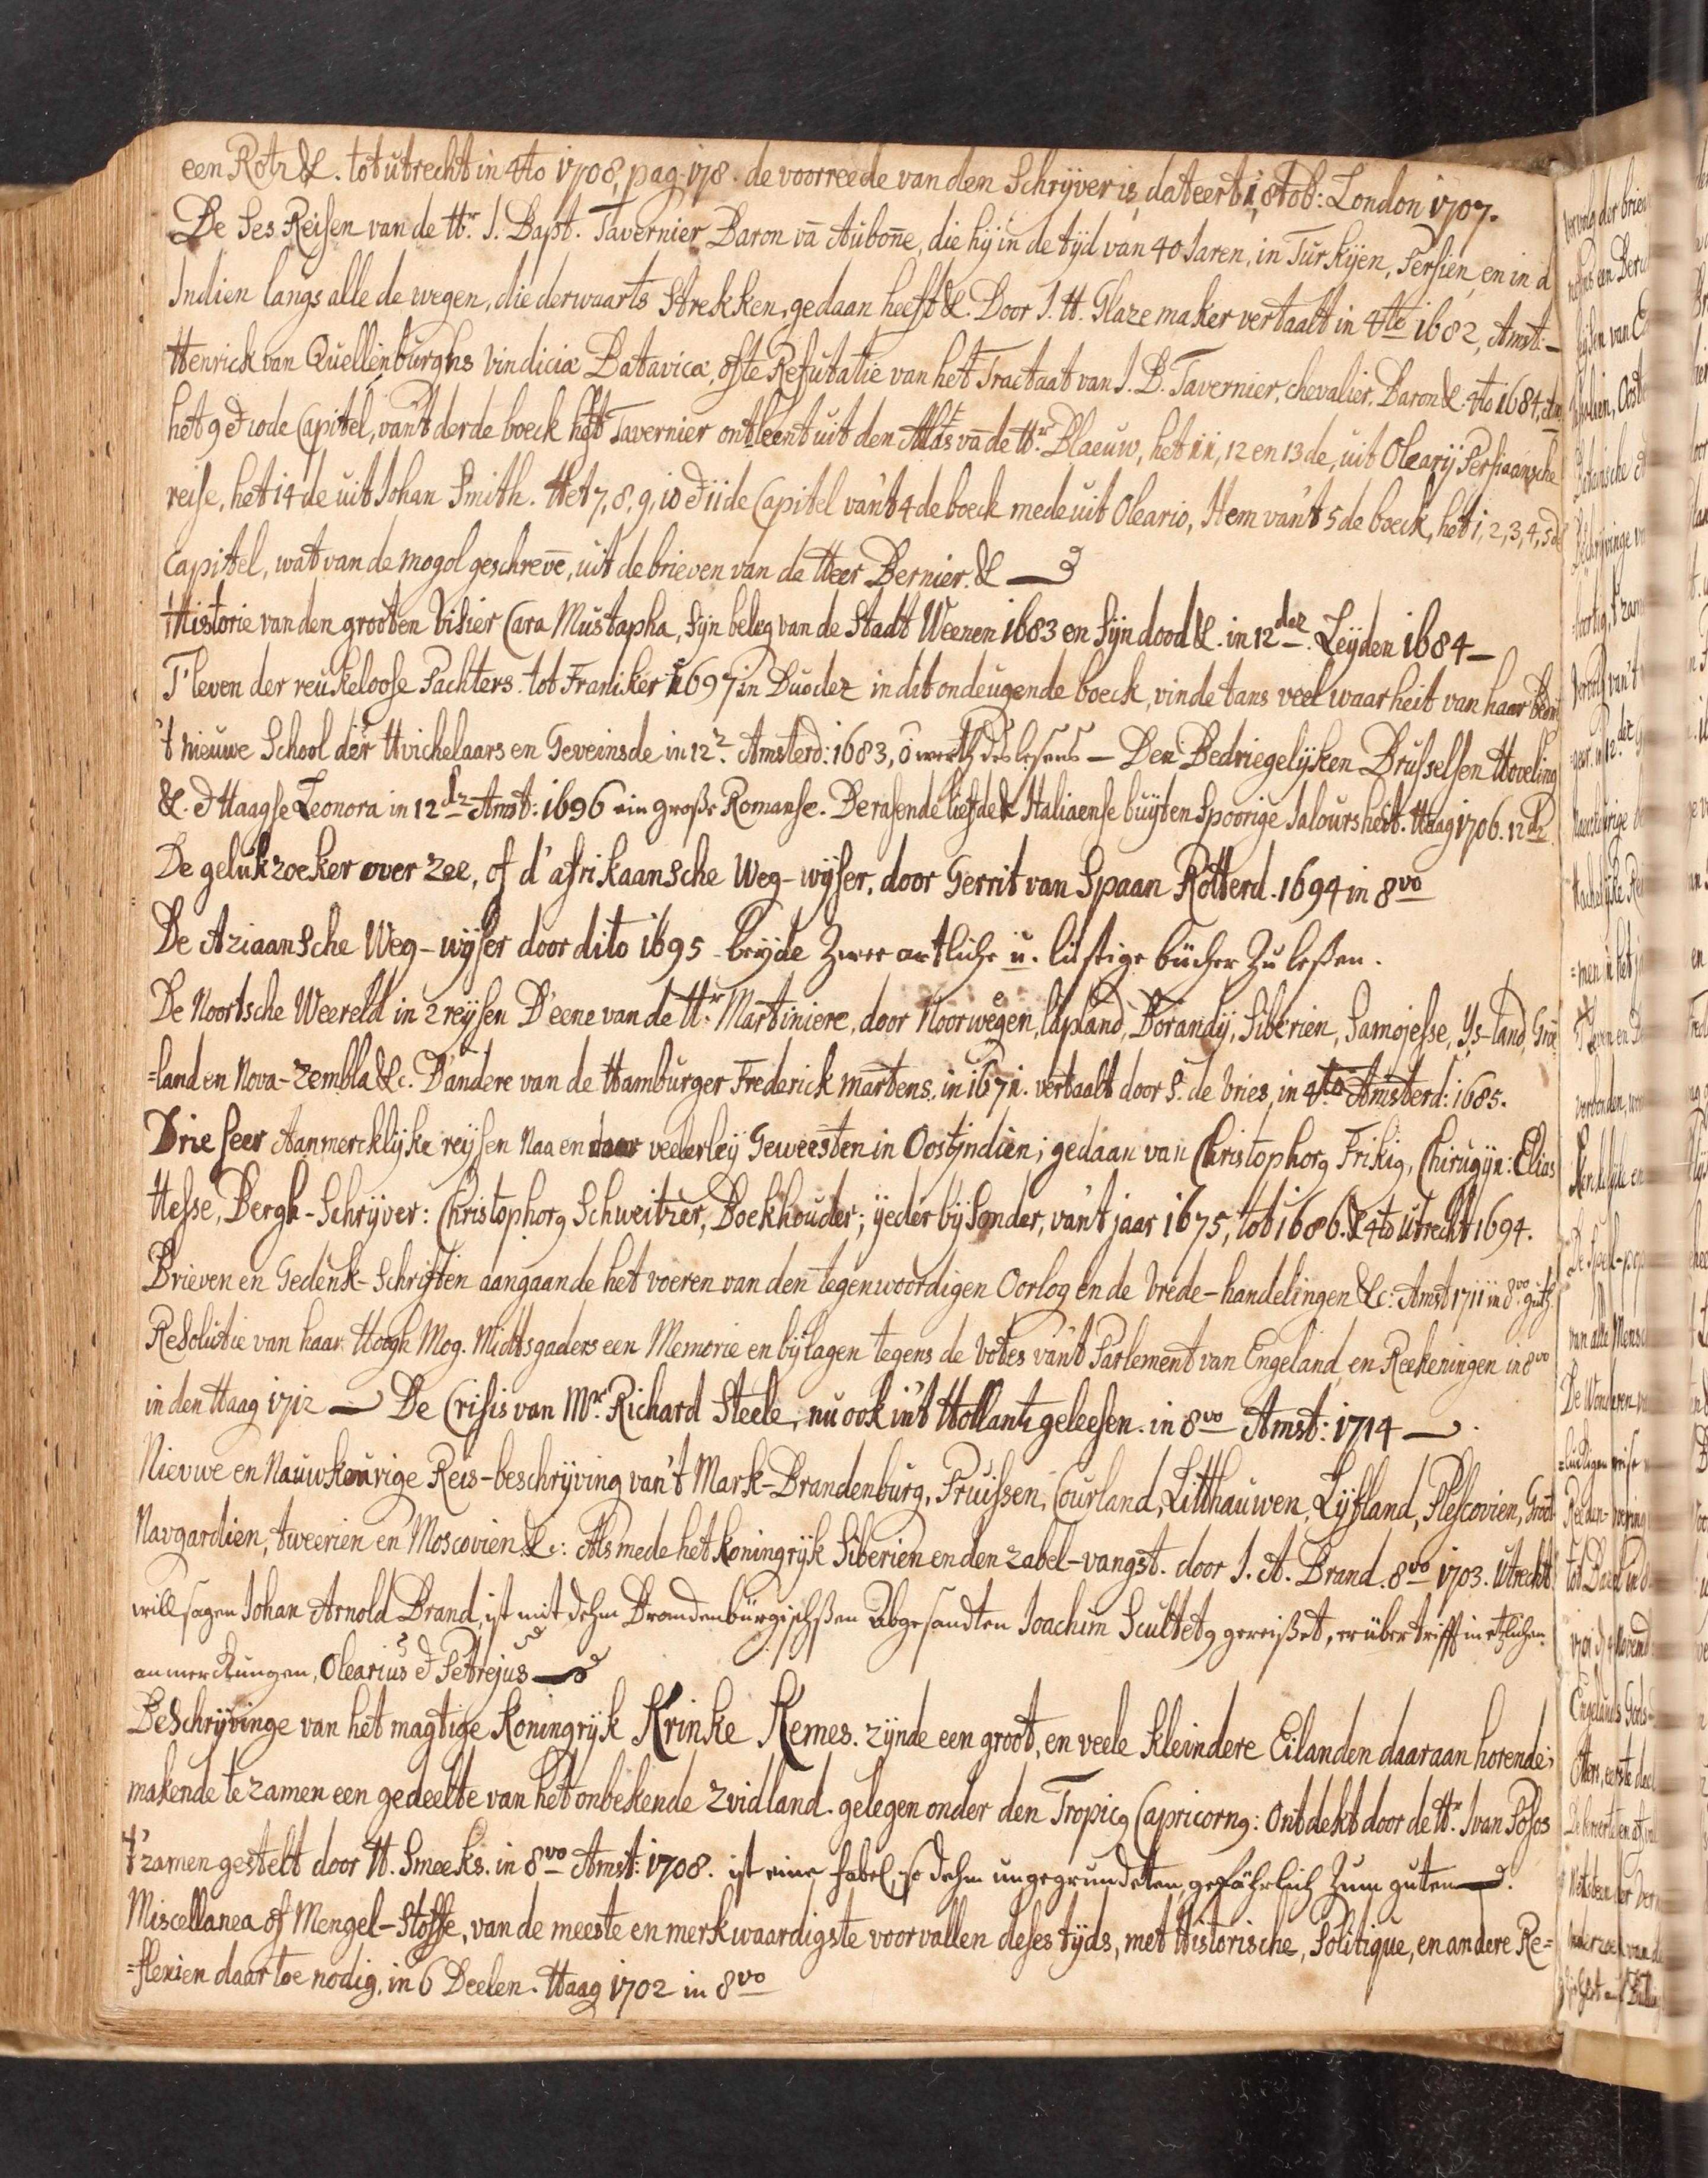 een Rotz &. tot utrecht in 4to 1708, pag. 178. de voorreede van den Schryver is dateert 1, 8tob: London 1707.
De Ses Reisen van de Hr. J. Bapt. Tavernier Baron vā Aubon̄e, die hy in de tÿd van 40 Jaren, in Turkÿen, Persien, en in d
Indien langs alle de wegen, die derwaarts Strekken, gedaan heeft &. Door J. H. Glazemaker vertaalt in 4to 1682, Amst: —
Henrick van Quellenburghs Vindiciæ Batavicæ, ofte Refutatie van het Tractaat van J. B. Tavernier, chevalier, Baron &. 4to 1684,
het 9 & 10de Capitel, van't derde boeck hęt Tavernier ontleent uit den Atlas vā de Hr. Blaeuw, het 11, 12 en 13de, uit Olearÿ Persiaansche
reise, het 14de uit Johan Smith. Het 7, 8, 9, 10 & 11de Capitel van't 4de boeck mede uit Oleario, Item van't 5de boeck, het 1, 2, 3, 4, 5de
Capitel, wat van de mogol geschrevē, uit de brieven van de Heer Bernier. &
Historie van den grooten Visier Cara Mustapha, Syn beleg van de Stadt Weenen 1683 en Syn dood &. in 12dez. Leÿden 1684 —
T' leven der reukeloose Pachters. tot Franiker 1697 in Duodez in dit ondeugende boeck, vinde tans veel waarheit van haar
't nieuwe School der Hvichelaars en Geveinsde in 12z. Amsterd: 1683, o werth des lesens — Den Bedriegelÿken Brusselsen Hoveling
&. & Haagse Leonora in 12dz Amst: 1696 ein große Romanse. De rasende liefde & Italiaense buÿten Spoorige Jaloursheit. Haag 1706. 12dz
De gelukzoeker over zee, of d'afrikaansche Weg-wÿser, door Gerrit van Spaan Rotterd. 1694 in 8vo
De Aziaansche Weg-wÿser door dito 1695 beÿde Zwee artliche u. lustige bücher Zu leßen.
De Noortsche Weereld in 2 reÿsen D'eene van de Hr. Martiniere, door Noorwegen, lapland, Borandÿ, Siberien, Samojesse, Ys-land, Grō
=land en Nova-zembla &c. D'andere van de Hamburger Frederick martens, in 1671. vertaalt door S. de Vries, in 4to Amsterd: 1685.
Drie seer Aanmercklÿke reÿsen Naa en door veelerleÿ Geweesten in Oostjndien; gedaan van Christophorg Frikig, Chirugÿn: Elias
Hesse, Bergh-Schrÿver: Christophorg Schweitzer, Boekhouder; ÿeder bÿsonder, van't jaar 1675, tot 1686. & 4to Utrecht 1694.
Brieven en Gedenk-Schriften aangaande het voeren van den tegenwoordigen Oorlog en de Vrede-handelingen &c: Amst 1711 in 8vo.
Resolutie van haar Hoogh Mog. Midtsgaders een Memorie en bÿlagen tegens de Votes van't Parlement van Engeland, en Reekeningen in 8vo
in den Haag 1712 — De Crisis van Mr. Richard Steele, nu ook in't Hollants geleesen. in 8vo Amst: 1714 —
Nieuwe en Nauwkeurige Reis-beschrÿving van't Mark-Brandenburg, Pruissen, Courland, Litthauwen, Lÿfland, Plescovien, Groot
Navgardien, tweerien en Moscovien &c: Als mede het Koningrÿk Siberien en den zabel-vangst. door J. A. Brand. 8vo 1703. Utrecht
will sagen Johan Arnold Brand, ist mit dehm Brandenbürgischßen Abgesandten Joachim Scultetg gereißet, er übertrifft in etlichen
anmerckungen, Olearius & Petrejus
Beschrÿvinge van het magtige Koningrÿk Krinke Kemes. zÿnde een groot, en veele kleindere Eilanden daaraan horende;
makende te zamen een gedeelte van het onbekende Zvidland. gelegen onder den Tropicg Capricorng: Ontdekt door de Hr. Jvan Posos
t'zamen gestelt door H. Smeeks. in 8vo Amst: 1708. ist eine fabel, so dehm ungegrundeten gefährlich Zum guten
Miscellanea of Mengel-Stoffe, van de meeste en merkwaardigste voorvallen deses tÿds, met Historische, Politique, en andere Re=
=flexien daar toe nodig, in 6 Deelen. Haag 1702 in 8vo